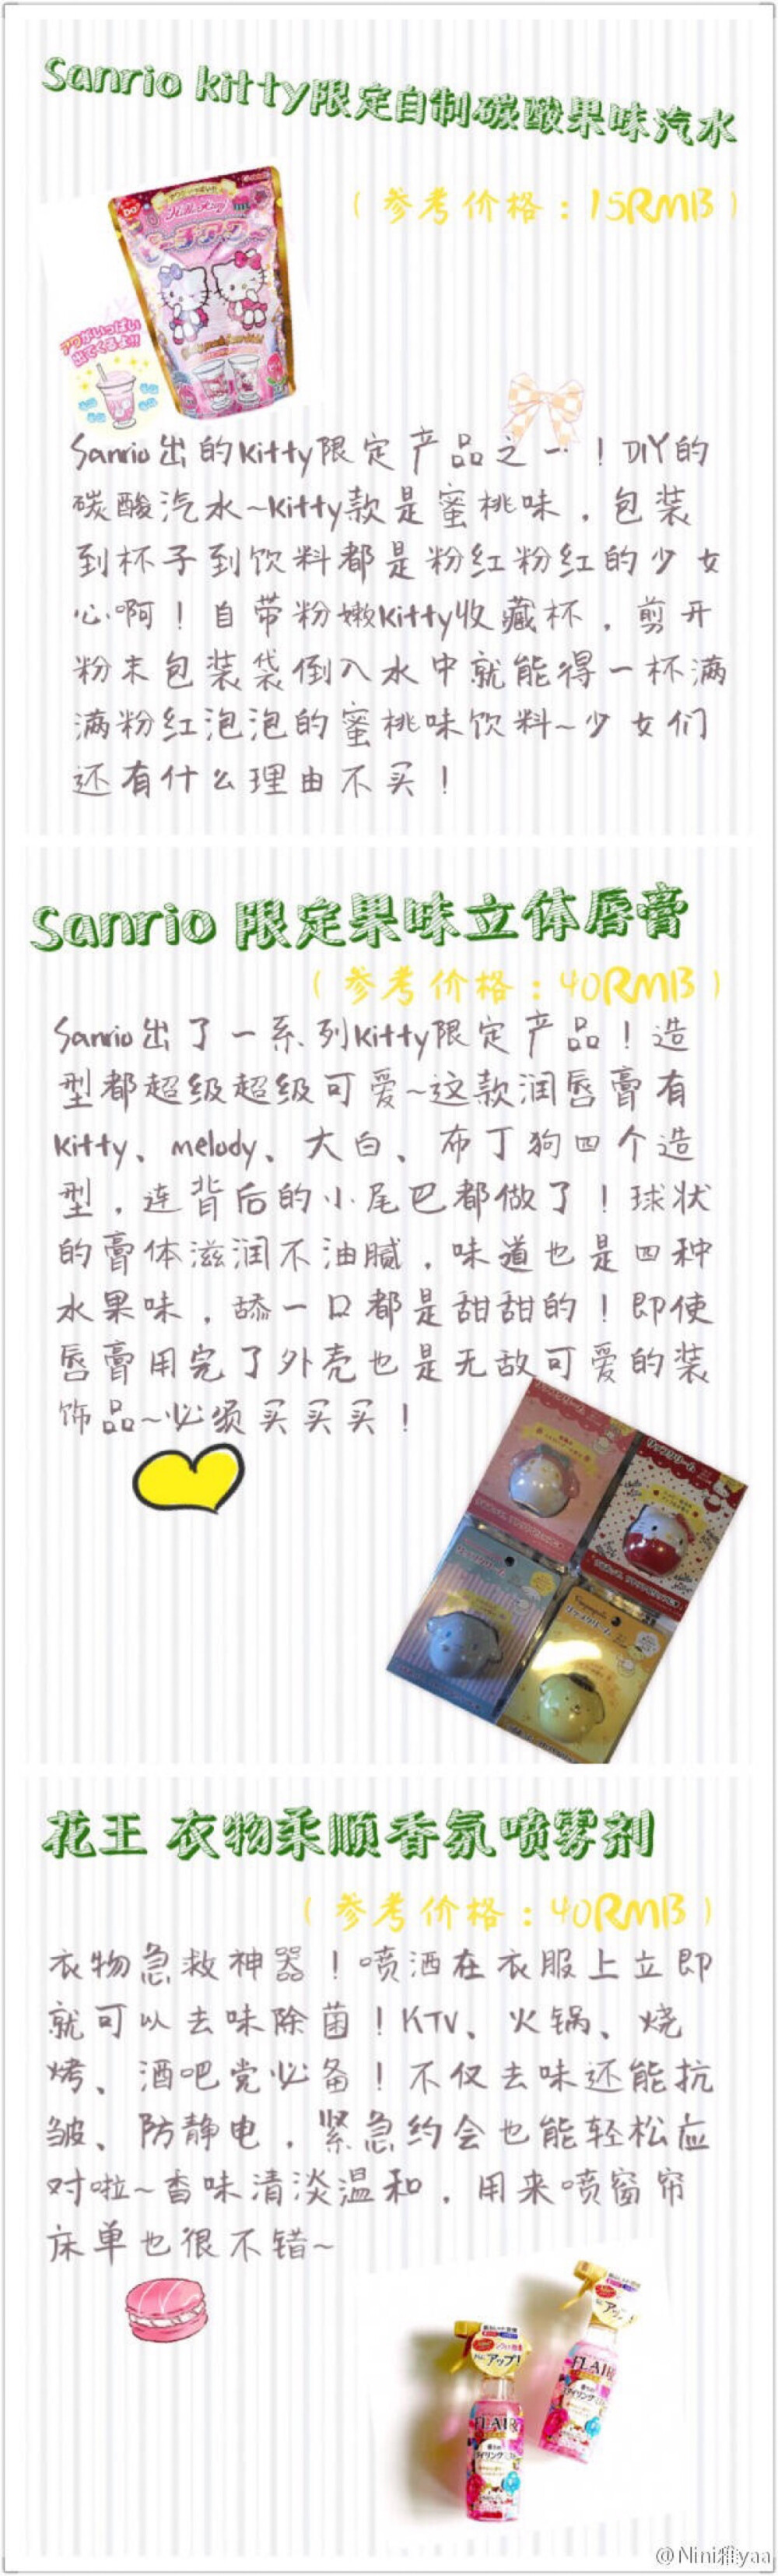 Sanrio kitty限定自制碳酸果味汽水
（参考价格：15RMB）
Hello Kitty
アワがいっぱい
出てくるよ!!
Sanrio出的kitty限定产品之一！DIY的
碳酸汽水~kitty款是蜜桃味，包装
到杯子到饮料都是粉红粉红的少女
心啊！自带粉嫩kitty收藏杯，剪开
粉末包装袋倒入水中就能得一杯满
满粉红泡泡的蜜桃味饮料~少女们
还有什么理由不买！
Sanrio 限定果味立体唇膏
（参考价格：40RMB）
Sanrio出了一系列kitty限定产品！造
型都超级超级可爱~这款润唇膏有
kitty、melody、大白、布丁狗四个造
型，连背后的小尾巴都做了！球状
的膏体滋润不油腻，味道也是四种
水果味，舔一口都是甜甜的！即使
唇膏用完了外壳也是无敌可爱的装
饰品~必须买买买！
リップクリーム
リップクリーム
リップクリーム
リップクリーム
花王 衣物柔顺香氛喷雾剂
（参考价格：40RMB）
衣物急救神器！喷洒在衣服上立即
就可以去味除菌！KTV、火锅、烧
烤、酒吧党必备！不仅去味还能抗
皱、防静电，紧急约会也能轻松应
对啦~香味清淡温和，用来喷窗帘
床单也很不错~
アップ!
FLAIR
アップ!
FLAIR
@Nini雅yaa